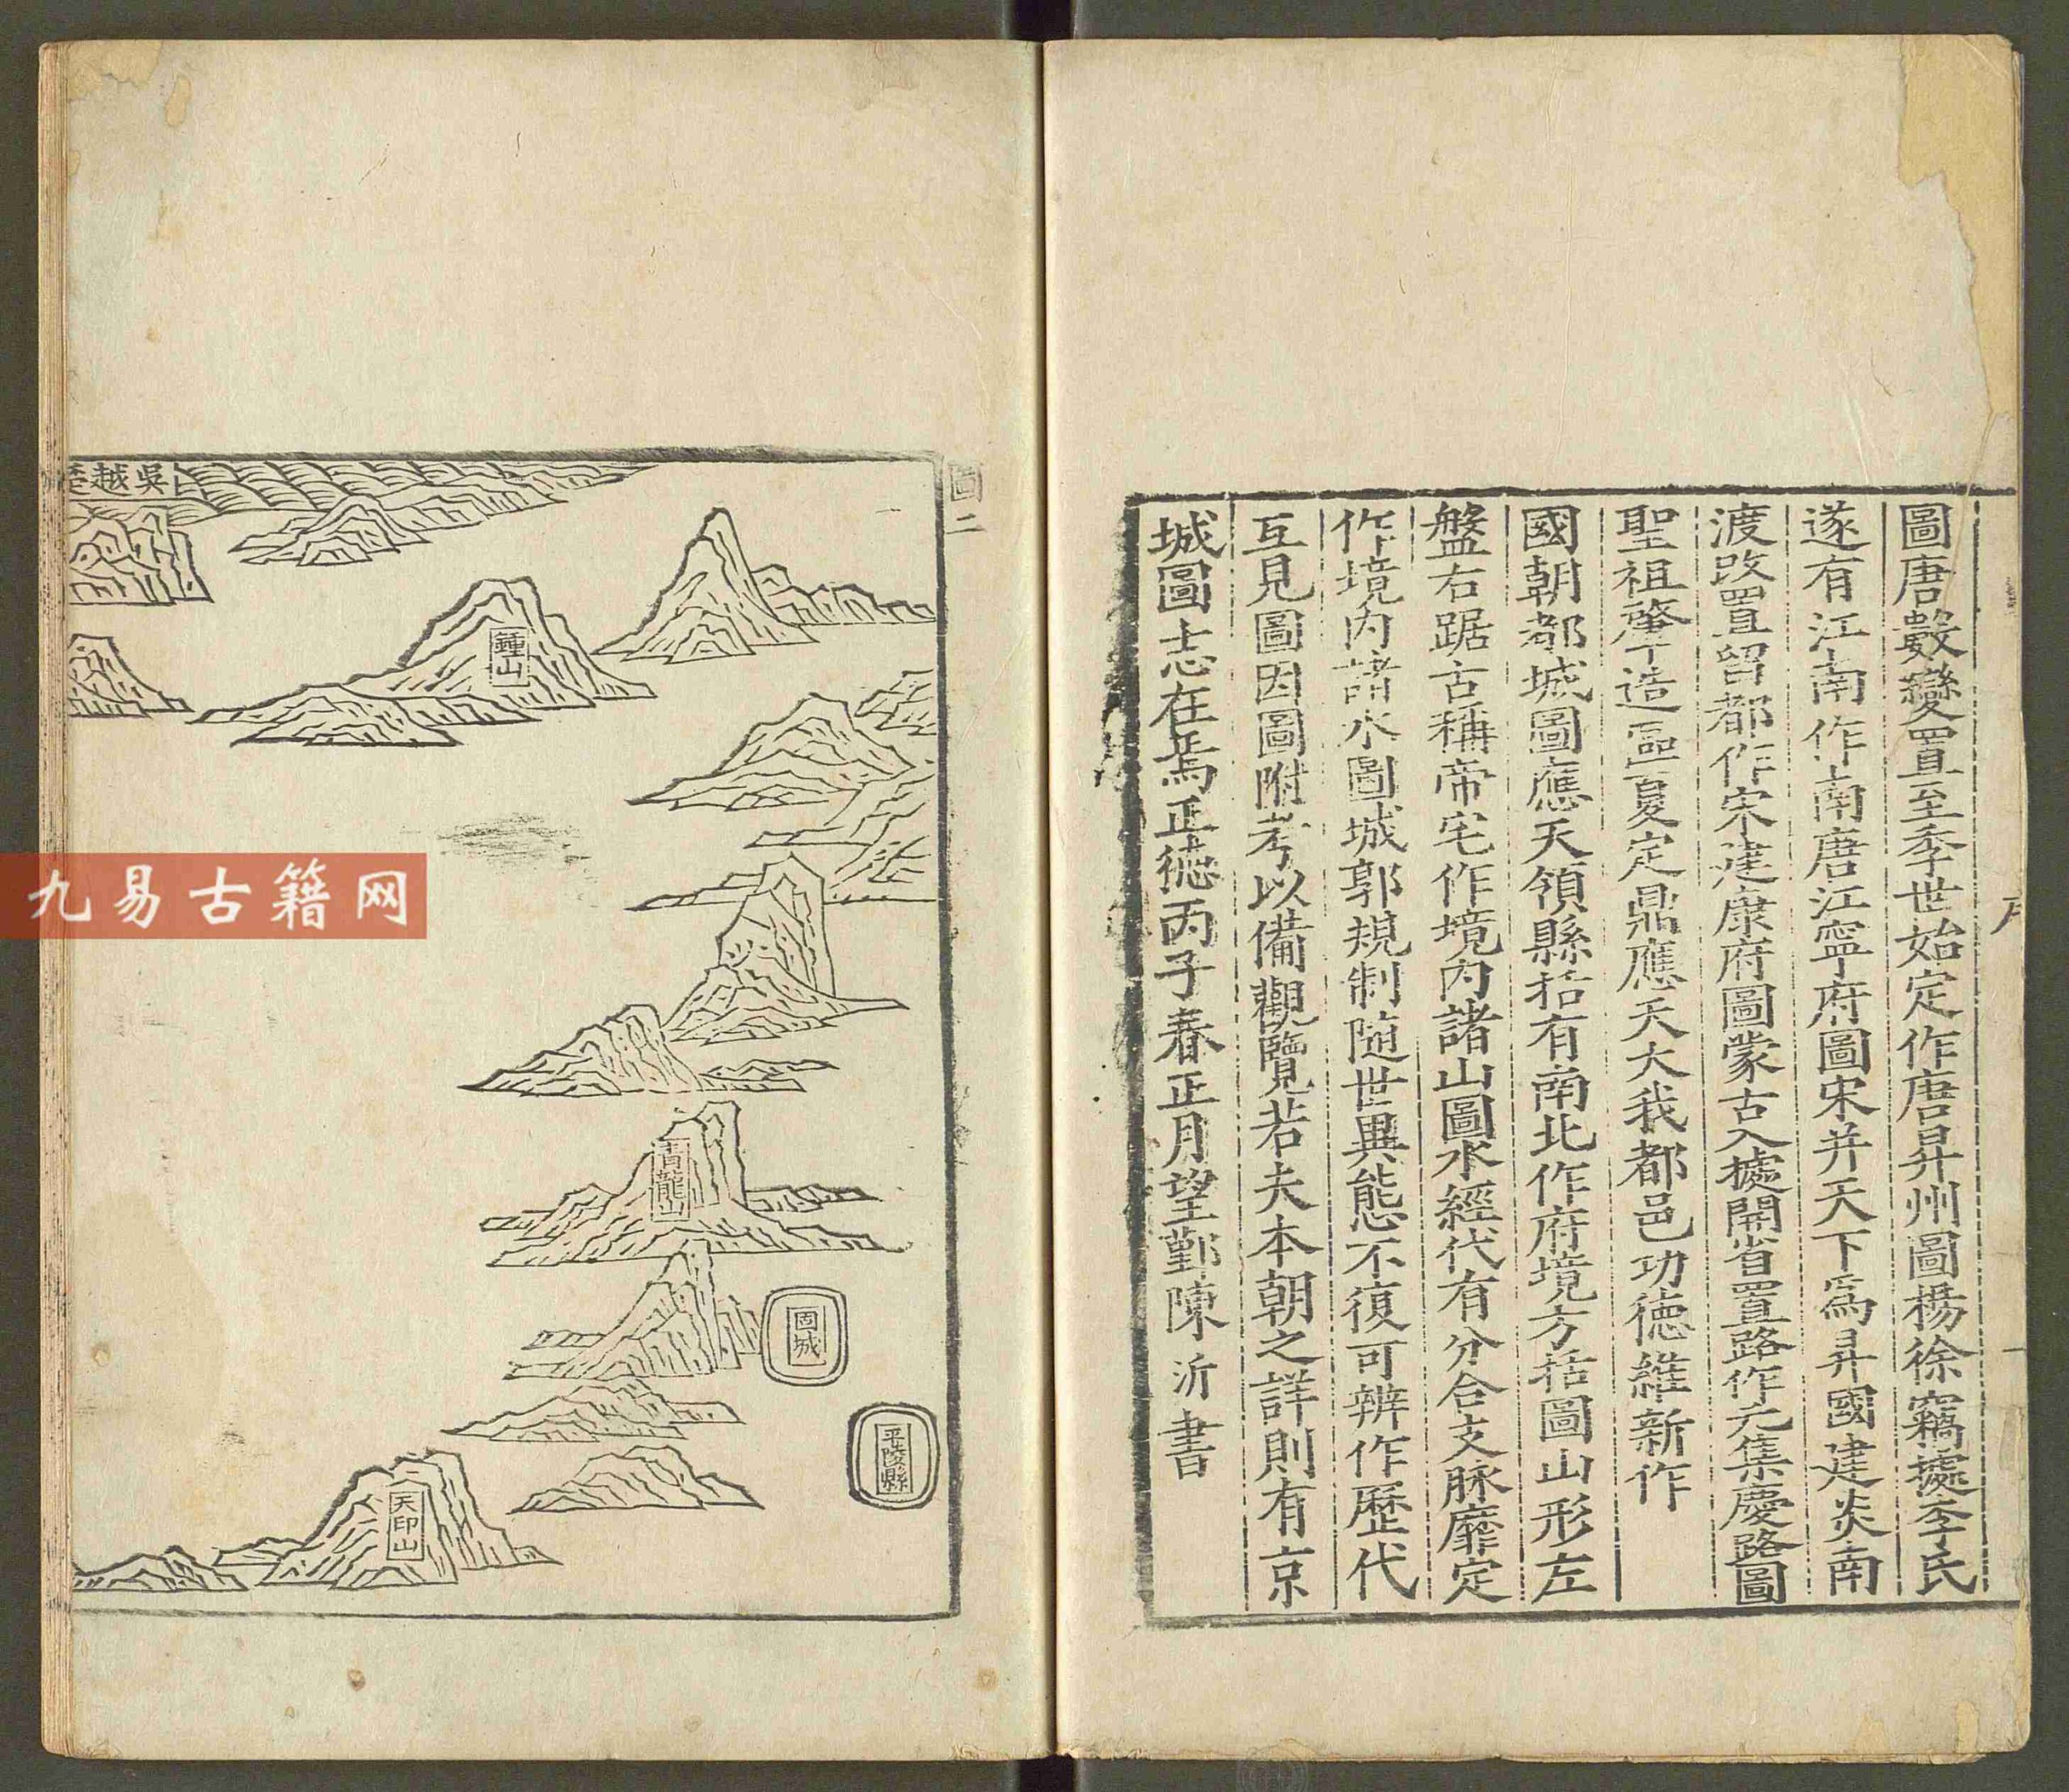 圖唐數變置至季世始定作唐昇州圖楊徐竊據李氏
遂有江南作南唐江寧府圖宋并天下爲昇國建炎南
渡改置留都作宋建康府圖蒙古入據開省置路作元集慶路圖
聖祖肇造區夏定鼎應天大我都邑功德維新作
國朝都城圖應天領縣括有南北作府境方括圖山形左
盤右踞古稱帝宅作境內諸山圖水經代有分合支脉靡定
作境內諸水圖城郭規制隨世異態不復可辨作歷代
互見圖因圖附考以備觀覽若夫本朝之詳則有京
城圖志在焉正德丙子春正月望鄞陳沂書
序
一
圖二
吳越楚
鍾山
青龍山
固城
平陵縣
天印山
九易古籍网